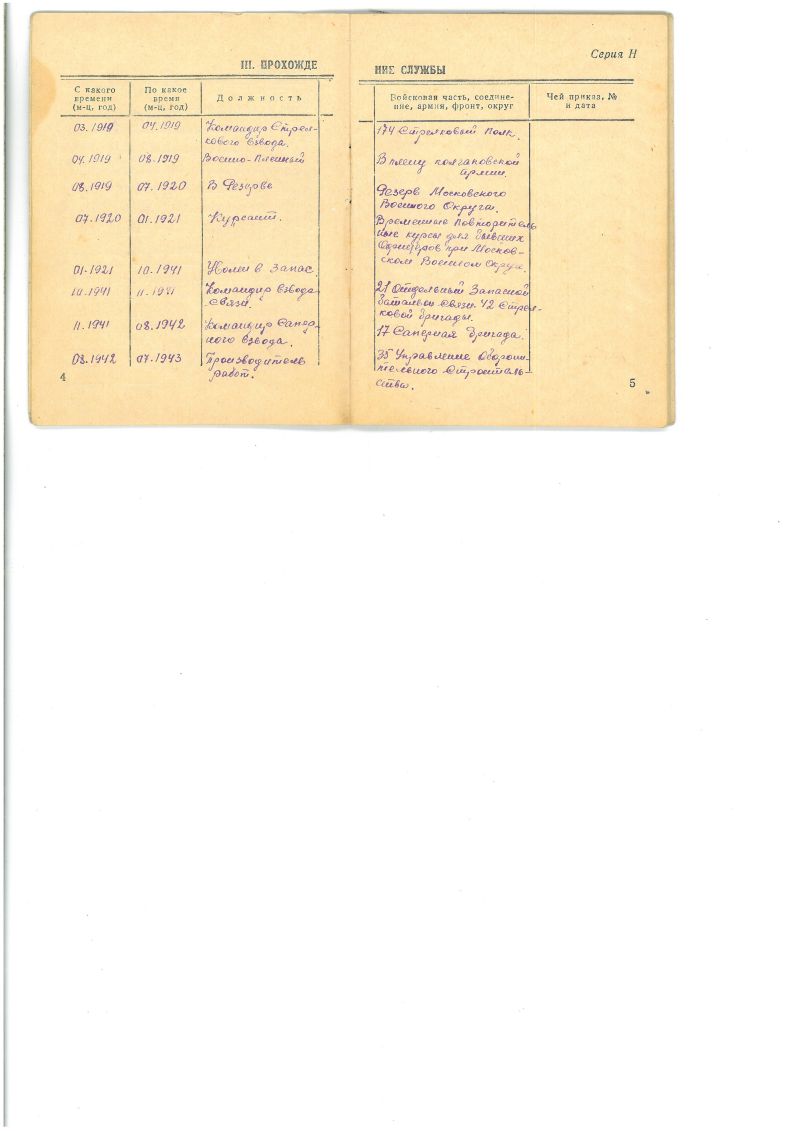 Серия Н
III. ПРОХОЖДЕ
НИЕ СЛУЖБЫ
С какого времени (м-ц, год)
По какое время (м-ц, год)
Должность
Войсковая часть, соедине-
ние, армия, фронт, округ
Чей приказ, №
и дата
03.1919 04.1919 Командир Стрел- 174 Стрелковый Полк.
кового Взвода.
04.1919 08.1919 Военно-Пленный В плену колчаковской
армии.
08.1919 07.1920 В Резерве Резерв Московского
Военного Округа.
07.1920 01.1921 Курсант. Временные Повторитель
ные курсы для бывших
Офицеров при Москов-
ском Военном Округе.
01.1921 10.1941 Уволен в Запас.
10.1941 11.1941 Командир Взвода 21 Отдельный Запасной
Связи. батальон связи 42 Стрел-
ковой бригады.
11.1941 08.1942 Командир Сапер- 17 Саперная бригада.
ного Взвода.
08.1942 07.1943 Производитель 35 Управление Оборони-
работ. тельного Строитель-
ства.
4
5